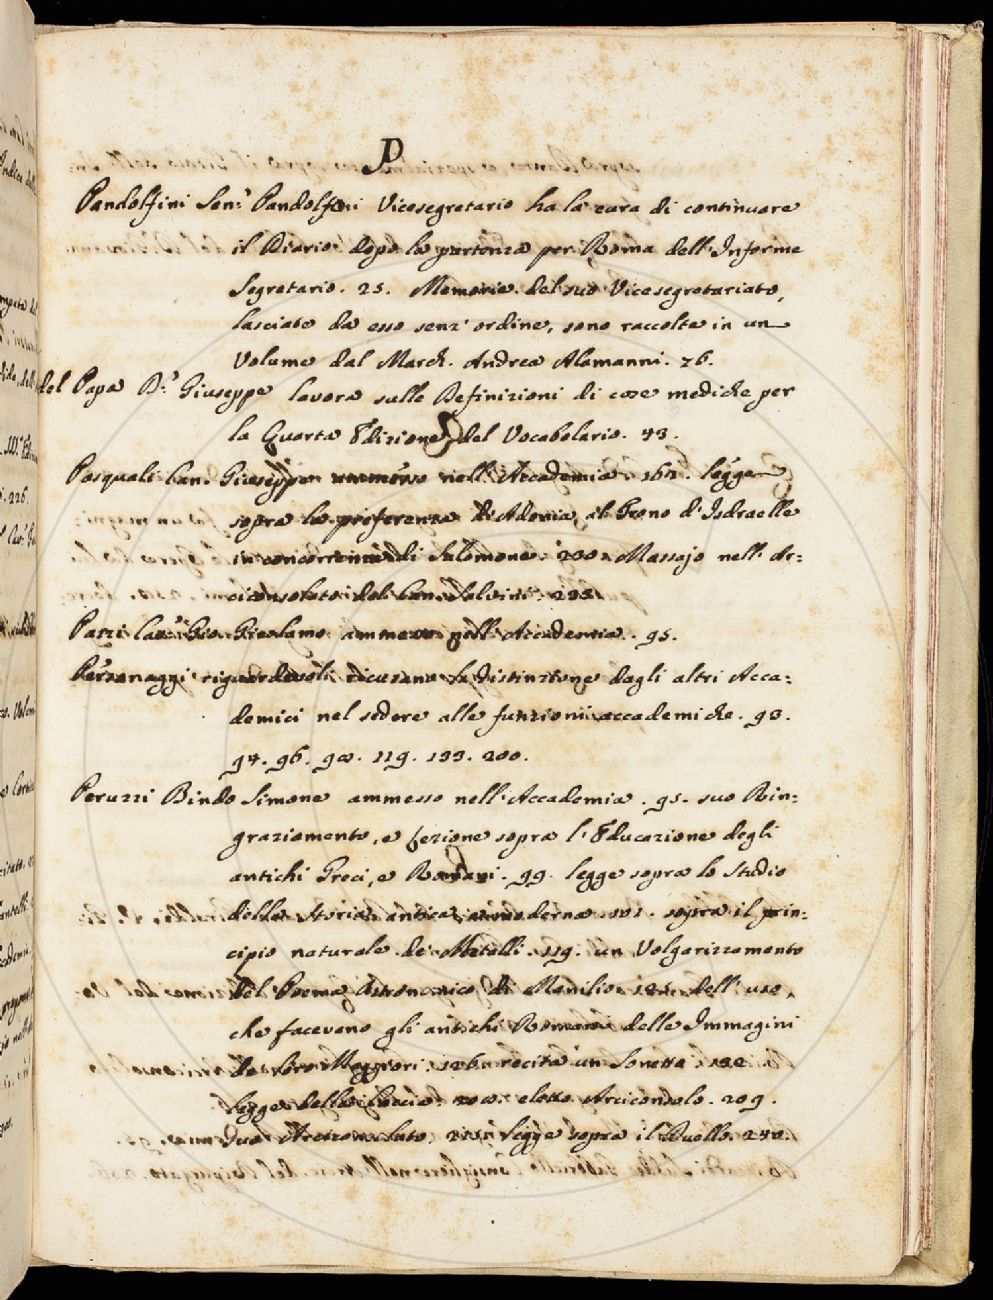 P
Pandolfini Sen.r Pandolfini Vicesegretario ha la cura di continuare
il Diario dopo la partenza per Roma dell' Informe
Segretario. 25. Memorie del suo Vicesegretariato,
lasciate da esso senz' ordine, sono raccolte in un
Volume dal March. Andrea Alamanni. 76.
del Papa D.r Giuseppe lavora sulle Definizioni di cose mediche per
la Quarta Edizione del Vocabolario. 43.
Pasquali Can. Giuseppe ammesso nell' Accademia. legge
sopra la preferenza d' Adonia al Trono d' Isdraelle
in concorrenza di Salomone. Massajo nell' Ar=
ciconsolato del Can. Salvini.
Pazzi Cav. Gio. Girolamo ammesso nell' Accademia. 95.
Personaggi riguardevoli ricusano la distinzione dagli altri Acca=
demici nel sedere alle funzioni accademiche. 93.
94. 96. 119. 133. 200.
Peruzzi Bindo Simone ammesso nell' Accademia. 95. suo Rin=
graziamento, e Lezione sopra l' Educazione degli
antichi Greci, e Romani. 99. legge sopra lo Studio
della Storia antica, e moderna. 101. sopra il prin=
cipio naturale de' Metalli. 119. un Volgarizzamento
del Poema Astronomico di Manilio. dell' uso,
che facevano gli antichi Romani delle Immagini
de' loro Maggiori. 126. recita un Sonetto.
legge della Caccia. eletto Arciconsolo. 209.
suo Arciconsolato. legge sopra il Duello.